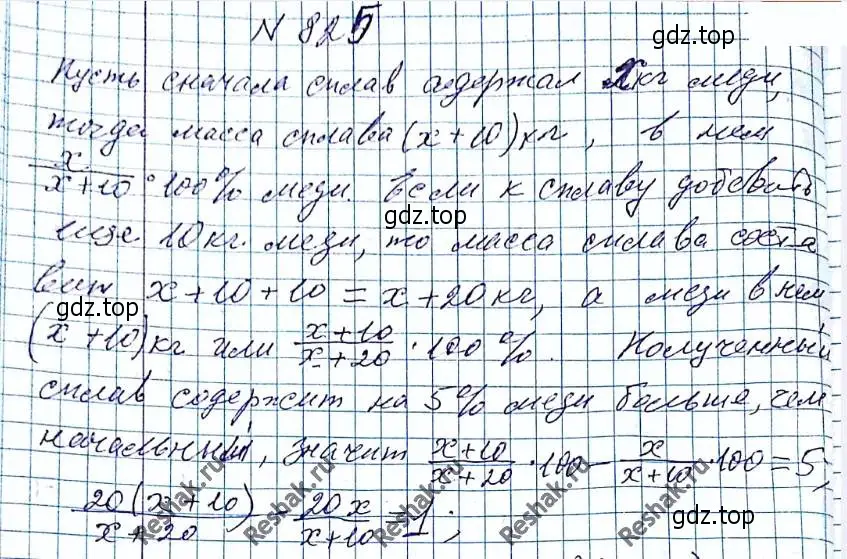 № 825
Пусть сначала сплав содержал x кг меди,
тогда масса сплава (x+10) кг, в нем
x/(x+10) · 100% меди. Если к сплаву добавить
еще 10 кг. меди, то масса сплава соста
вит x+10+10 = x+20 кг, а меди в нем
(x+10) кг или (x+10)/(x+20) · 100%. Полученный
сплав содержит на 5% меди больше, чем
начальный, значит (x+10)/(x+20) · 100 - x/(x+10) · 100 = 5;
20(x+10)/(x+20) - 20x/(x+10) = 1;
gdz.top
gdz.top
gdz.top
gdz.top
gdz.top
gdz.top
gdz.top
Reshak.ru
Reshak.ru
Reshak.ru
Reshak.ru